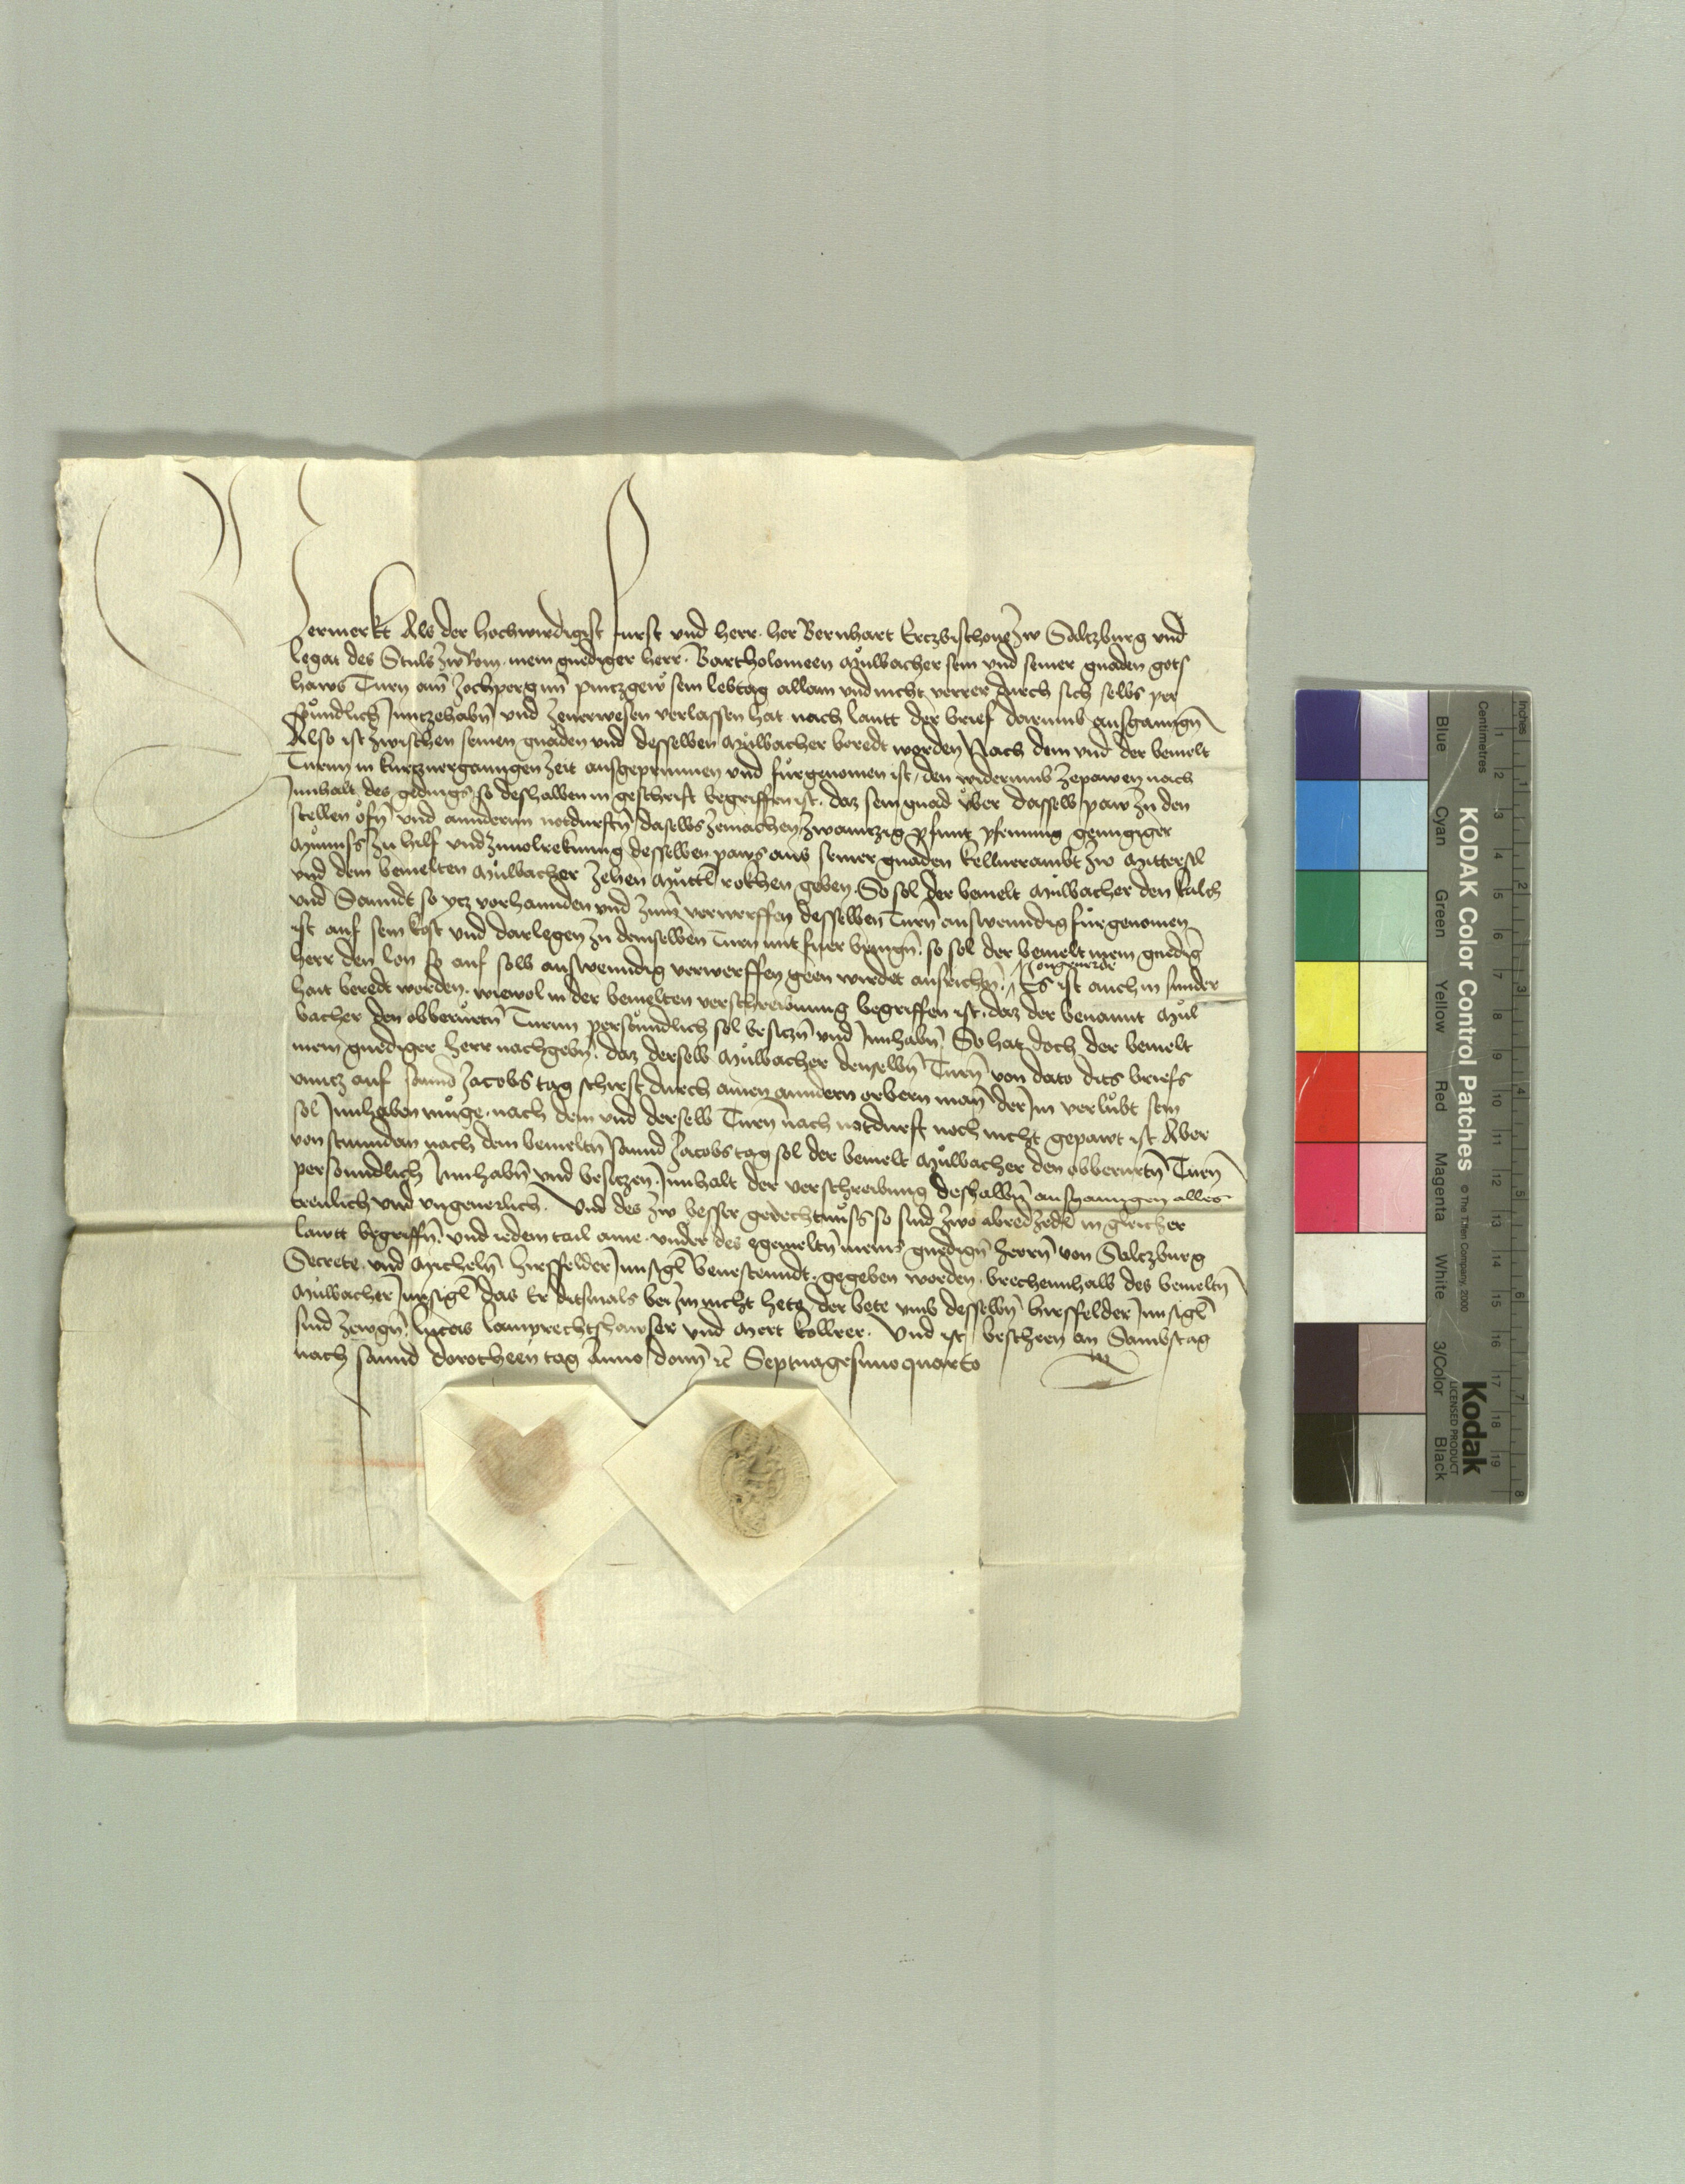 Vermerkt Als der hochwirdigist furst vnd herr her Bernhart Ertzbischoue zw Saltzburg vnd
legat des Stuls zw Rom mein gnediger herr Bartholomeen Můlbacher sein vnd seiner gnaden gots
haws Turn am Jochperg im pintzgew sein lebtag allain vnd nicht verrer durch sich selbs per
sőundlich Inntzehabn̄ vnd zeuerwesen verlassen hat nach lautt der brief darumb ausgangn̄
Also ist zwischen seinen gnaden vnd desselben Můlbacher beredt worden Nach dem vnd der bemelt
Turnn in kurtzuergangen zeit ausgeprunnen vnd fůrgenomen ist den widerumb zepawen nach
Innhalt des gedings so deshalben in geschrift begriffen ist daz sein gnad ůber dasselb paw zu den
stellen ofn̄ vnd anndern notdurftn̄ daselbs zemachen zwaintzig pfunt pfenning genngiger
Můnnss zu hilf vnd zuuolrekung desselben paws aus seiner gnaden kellnerambt zw Mittersil
vnd dem bemelten Můlbacher zehen Můttl rokhen geben So sol der bemelt Mulbacher den kalch
vnd Sanndt so ytz vorhannden vnd zum verwerffen desselben Turn auswenndig fůrgenomen
ist auf sein kost vnd darlegen zu demselben Turn mit fuer bringn̄ so sol der bemelt mein gnedig
herr den lon so auf solh auswenndig verwerffen geen wirdet ausrichn̄ ongeuerde Es ist auch in sunder
hait beredt worden wiewol in der bemelten verschreibung begriffen ist daz der benannt Můl
bacher den obberůrtn̄ Turnn persőundlich sol besitzn̄ vnd Innhabn̄ So hat doch der bemelt
mein gnediger herr nachgebn̄ daz derselb Můlbacher denselbn̄ Turn̄ von dato dits briefs
vnntz auf sannd Jacobs tag schirst durch ainen anndern erbern man der Im verlůbt sein
sol Innhaben můge nach dem vnd derselb Turn nach notdurft noch nicht gepawt ist Aber
von stunndan nach dem bemeltn̄ sannd Jacobs tag sol der bemelt Můlbacher den obberurtn̄ Turn̄
persoundlich Innhabn̄ vnd besitzen Innhalt der verschreibung deshalbn̄ ausganngen alles
treulich vnd vngeuerlich Vnd des zw besser gedechtnůss so sind zwo abred zedl in gleicher
lautt begriffn̄ vnd iedem tail aine vnder des egemeltn̄ meins gnedign̄ herrn̄ von Saltzburg
Secrete vnd Micheln̄ hirsfelder Innsigl̄ beuestenndt gegeben worden brechennhalb des bemeltn̄
Můlbacher Innsigl̄ Das Er ditsmals bei Im nicht hete der bete vmb desselbn̄ hirsfelder Innsigl̄
sind zewgn̄ lucas lamprechtshawser vnd Mert kollrer Vnd ist bescheen an Sambstag
nach sannd dorotheen tag Anno domı̄ ꝛc̄ Septuagesimoquarto
KODAK Color Control Patches
© The Tiffen Company, 2000
Kodak
LICENSED PRODUCT
Inches
Centimetres
1 2 3 4 5 6 7 8
1 2 3 4 5 6 7 8 9 10 11 12 13 14 15 16 17 18 19
Blue Cyan Green Yellow Red Magenta White 3/Color Black